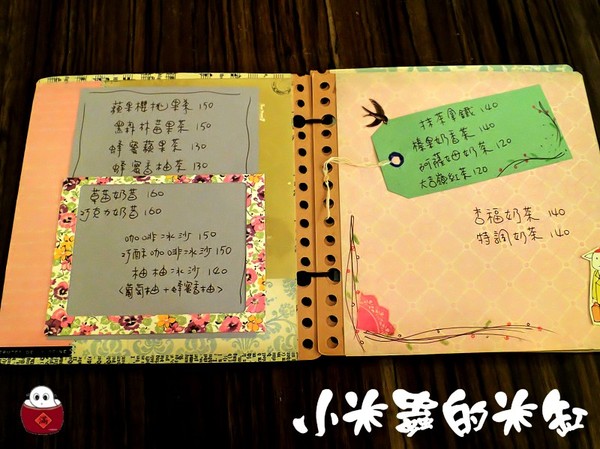 蘋果櫻桃果茶 150
黑森林莓果茶 150
蜂蜜蘋果茶 130
蜂蜜香柚茶 130
草莓奶昔 160
巧克力奶昔 160
咖啡冰沙 150
巧酥咖啡冰沙 150
柚柚冰沙 140
(葡萄柚+蜂蜜香柚)
抹茶拿鐵 140
榛果奶香茶 140
阿薩姆奶茶 120
大吉嶺紅茶 120
杏福奶茶 140
特調奶茶 140
小米蟲的米缸